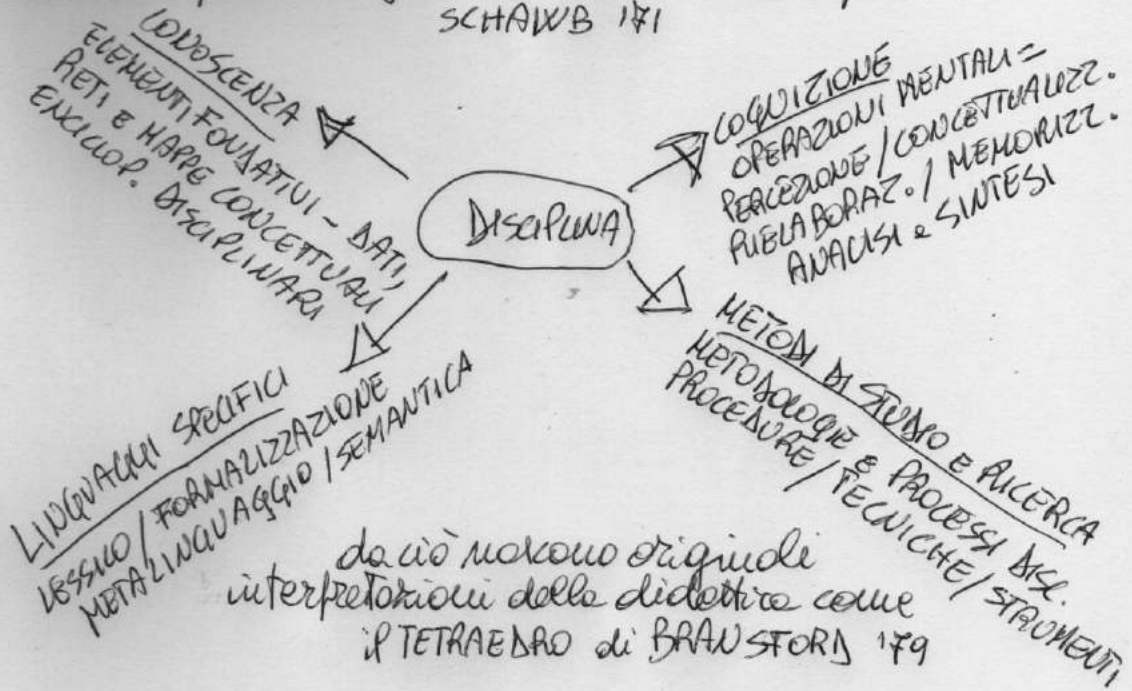 SCHAWB '71
CONOSCENZA
ELEMENTI FONDATIVI - DATI,
RETI E MAPPE CONCETTUALI
ENCICLOP. DISCIPLINARI
COGNIZIONE
OPERAZIONI MENTALI =
PERCEZIONE / CONCETTUALIZZ.
RIELABORAZ. / MEMORIZZ.
ANALISI e SINTESI
DISCIPLINA
LINGUAGGI SPECIFICI
LESSICO / FORMALIZZAZIONE
METALINGUAGGIO / SEMANTICA
METODI DI STUDIO E RICERCA
METODOLOGIE E PROCESSI DISC.
PROCEDURE / TECNICHE / STRUMENTI
da ciò nascono originali
interpretazioni della didattica come
il TETRAEDRO di BRANSFORD '79